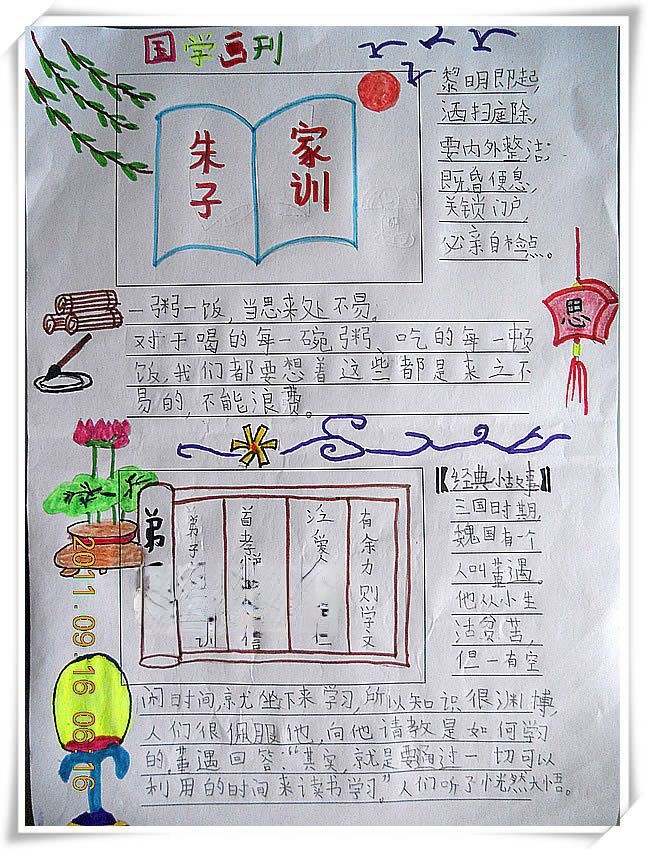 国学画刊
朱子
家训
黎明即起,
洒扫庭除,
要内外整洁;
既昏便息,
关锁门户,
必亲自检点。
思
一粥一饭,当思来处不易。
对于喝的每一碗粥、吃的每一顿
饭,我们都要想着这些都是来之不
易的,不能浪费。
弟
弟子 训
首孝悌 信
泛爱 仁
有余力则学文
【经典小故事】
三国时期,
魏国有一个
人叫董遇
他从小生
活贫苦,
但一有空
闲时间,就坐下来学习,所以知识很渊博,
人们很佩服他,向他请教是如何学习
的,董遇回答:“其实,就是要通过一切可以
利用的时间来读书学习”人们听了恍然大悟。
2011.09.16 06:16